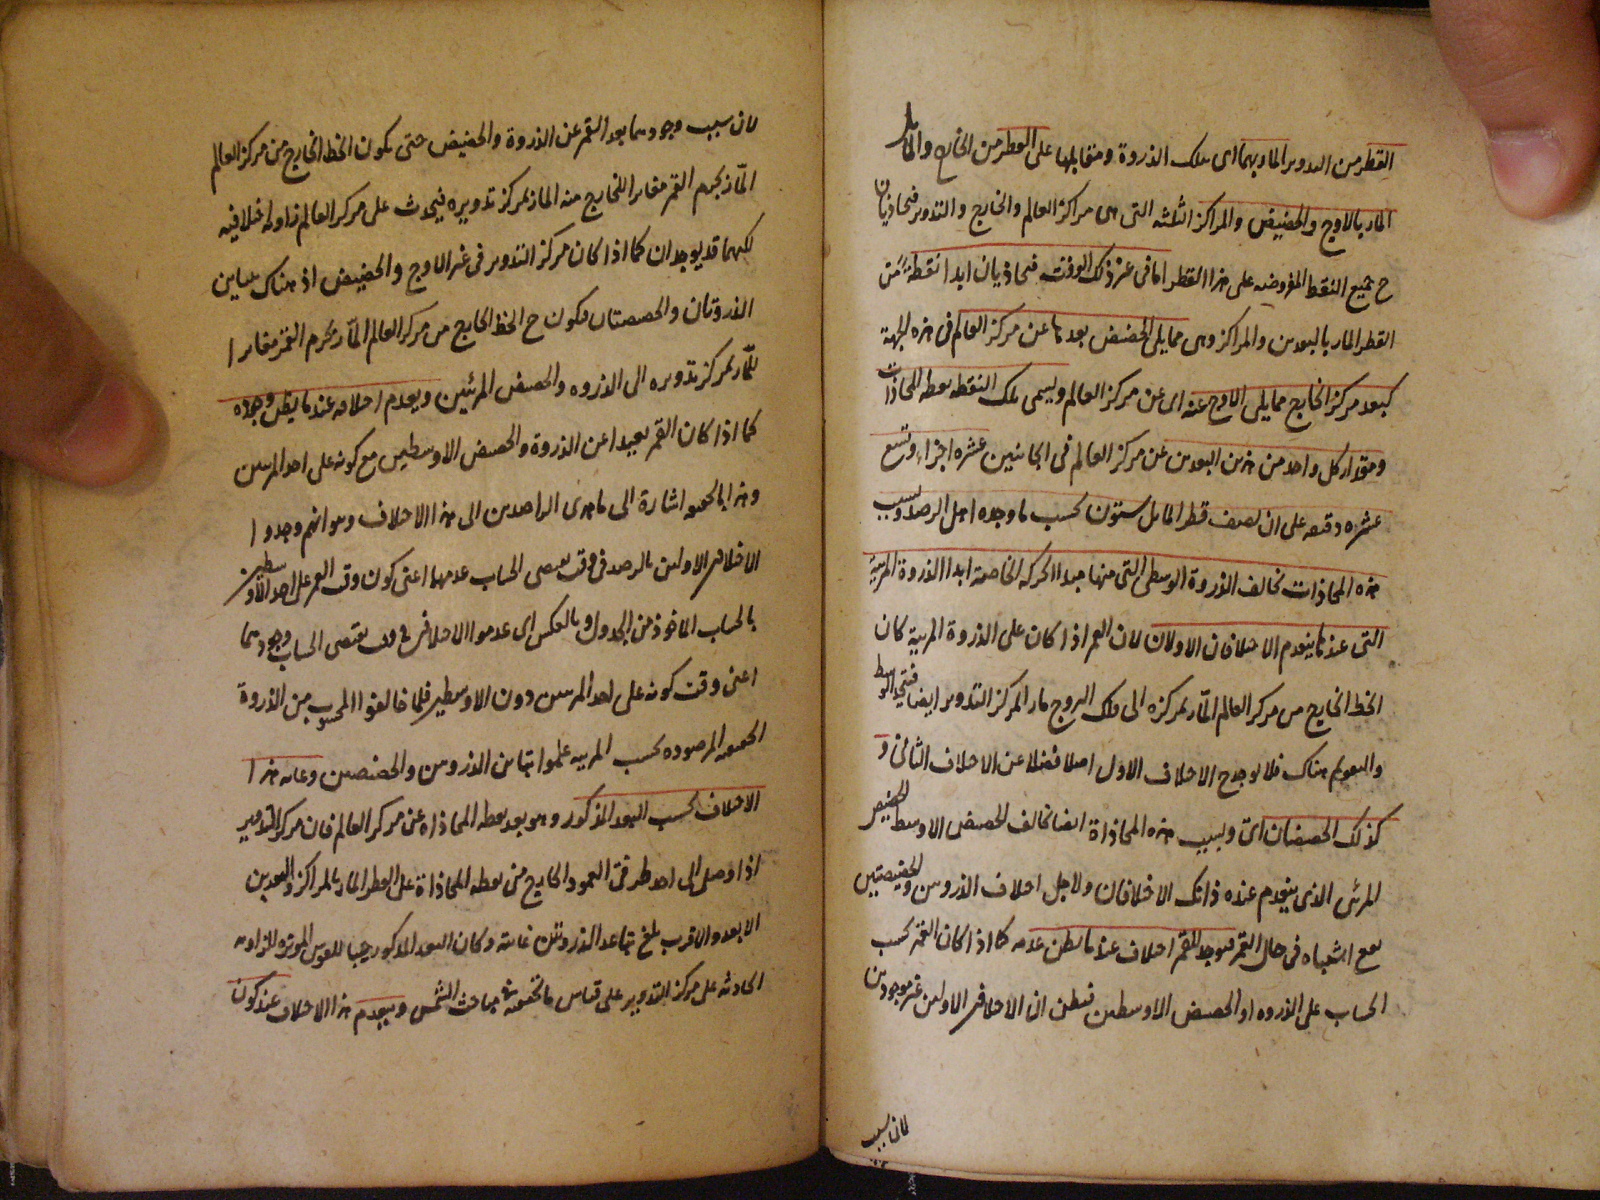 القطر من التدوير المار بهما اى بتلك الذروة ومقابلها على القطر من الخارج والمائل
المار بالاوج والحضيض والمراكز الثلثه التى هى مراكز العالم والخارج والتدوير فتحاذيان
ح جميع النقط المفروضه على هذا القطر اما فى غير ذلك الوقت فتحاذيان ابدا نقطة من
القطر المار بالبعدين والمراكز وهى مما يلى الحضيض بعدها عن مركز العالم فى هذه الجهة
كبعد مركز الخارج مما يلى الاوج عنه اى عن مركز العالم ويسمى تلك النقطه نقطه المحاذات
ومقدار كل واحد من هذين البعدين عن مركز العالم فى الجانبين عشره اجزاء وتسع
عشره دقيقه على ان نصف قطر المائل ستون بحسب ما وجده اهل الرصد وبسبب
هذه المحاذات تخالف الذروة الوسطى التى منها مبدا الحركه الخاصة ابدا الذروة المرئية
التى عندها ينعدم الاختلافان الاولان لان القمر اذا كان على الذروة المرئية كان
الخط الخارج من مركز العالم المار بمركزه الى فلك البروج مارا بمركز التدوير ايضا فيتحد الوسط
والتقويم هناك فلا يوجد ح الاختلاف الاول اصلا فضلا عن الاختلاف الثانى و
كذلك الحضيضان اى وبسبب هذه المحاذاة ايضا تخالف الحضيض الاوسط الحضيض
المرئى الذى ينعدم عنده ذانك الاختلافان ولاجل اختلاف الذروتين والحضيضين
يقع اشتباه فى حال القمر فيوجد للقمر اختلاف عند ما يظن عدمه كما اذا كان القمر بحسب
الحساب على الذروه او الحضيض الاوسطين فيظن ان الاختلافين الاولين غير موجودين
لان سبب
لان سبب وجودهما بعد القمر عن الذروة والحضيض حتى يكون الخط الخارج من مركز العالم
المار بجرم القمر مغايرا للخارج منه المار بمركز تدويره فيحدث على مركز العالم زاوية اختلافيه
لكنهما قد يوجدان كما اذا كان مركز التدوير فى غير الاوج والحضيض اذ هناك يتباين
الذروتان والحضيضتان فيكون ح الخط الخارج من مركز العالم المار بجرم القمر مغايرا
للمار بمركز تدويره الى الذروه والحضيض المرئيين ويعدم اختلافه عند ما يظن وجوده
كما اذا كان القمر بعيدا عن الذروة والحضيض الاوسطين مع كونه على احد المرئيين
وهذا بالحقيقه اشارة الى ما هدى الراصدين الى هذا الاختلاف وهو انهم وجدوا
الاختلافين الاولين بالرصد فى وقت يقتضى الحساب عدمهما اعنى كون وقت القمر على احد الاوسطين
بالحساب الماخوذ من الجدول وبالعكس اى عدموا الاختلافين فى وقت يقتضى الحساب وجودهما
اعنى وقت كونه على احد المرئيين دون الاوسطين فلما خالفوا المحسوب من الذروة
الحقيقه المرصوده بحسب المرئيه علموا تباين الذروتين والحضيضين وغايه هذا
الاختلاف بحسب البعد المذكور وهو بعد نقطه المحاذاه عن مركز العالم فان مركز التدوير
اذا وصل الى احد طرفى العمود الخارج من نقطه المحاذاة على القطر المار بالمراكز والبعدين
الابعد والاقرب بلغ تباعد الذروتين غايته وكان البعد المذكور جيبا للقوس الموتره للزاويه
الحادثه على مركز التدوير على قياس ما تحققته فى مباحث الشمس وينعدم هذا الاختلاف عند كون